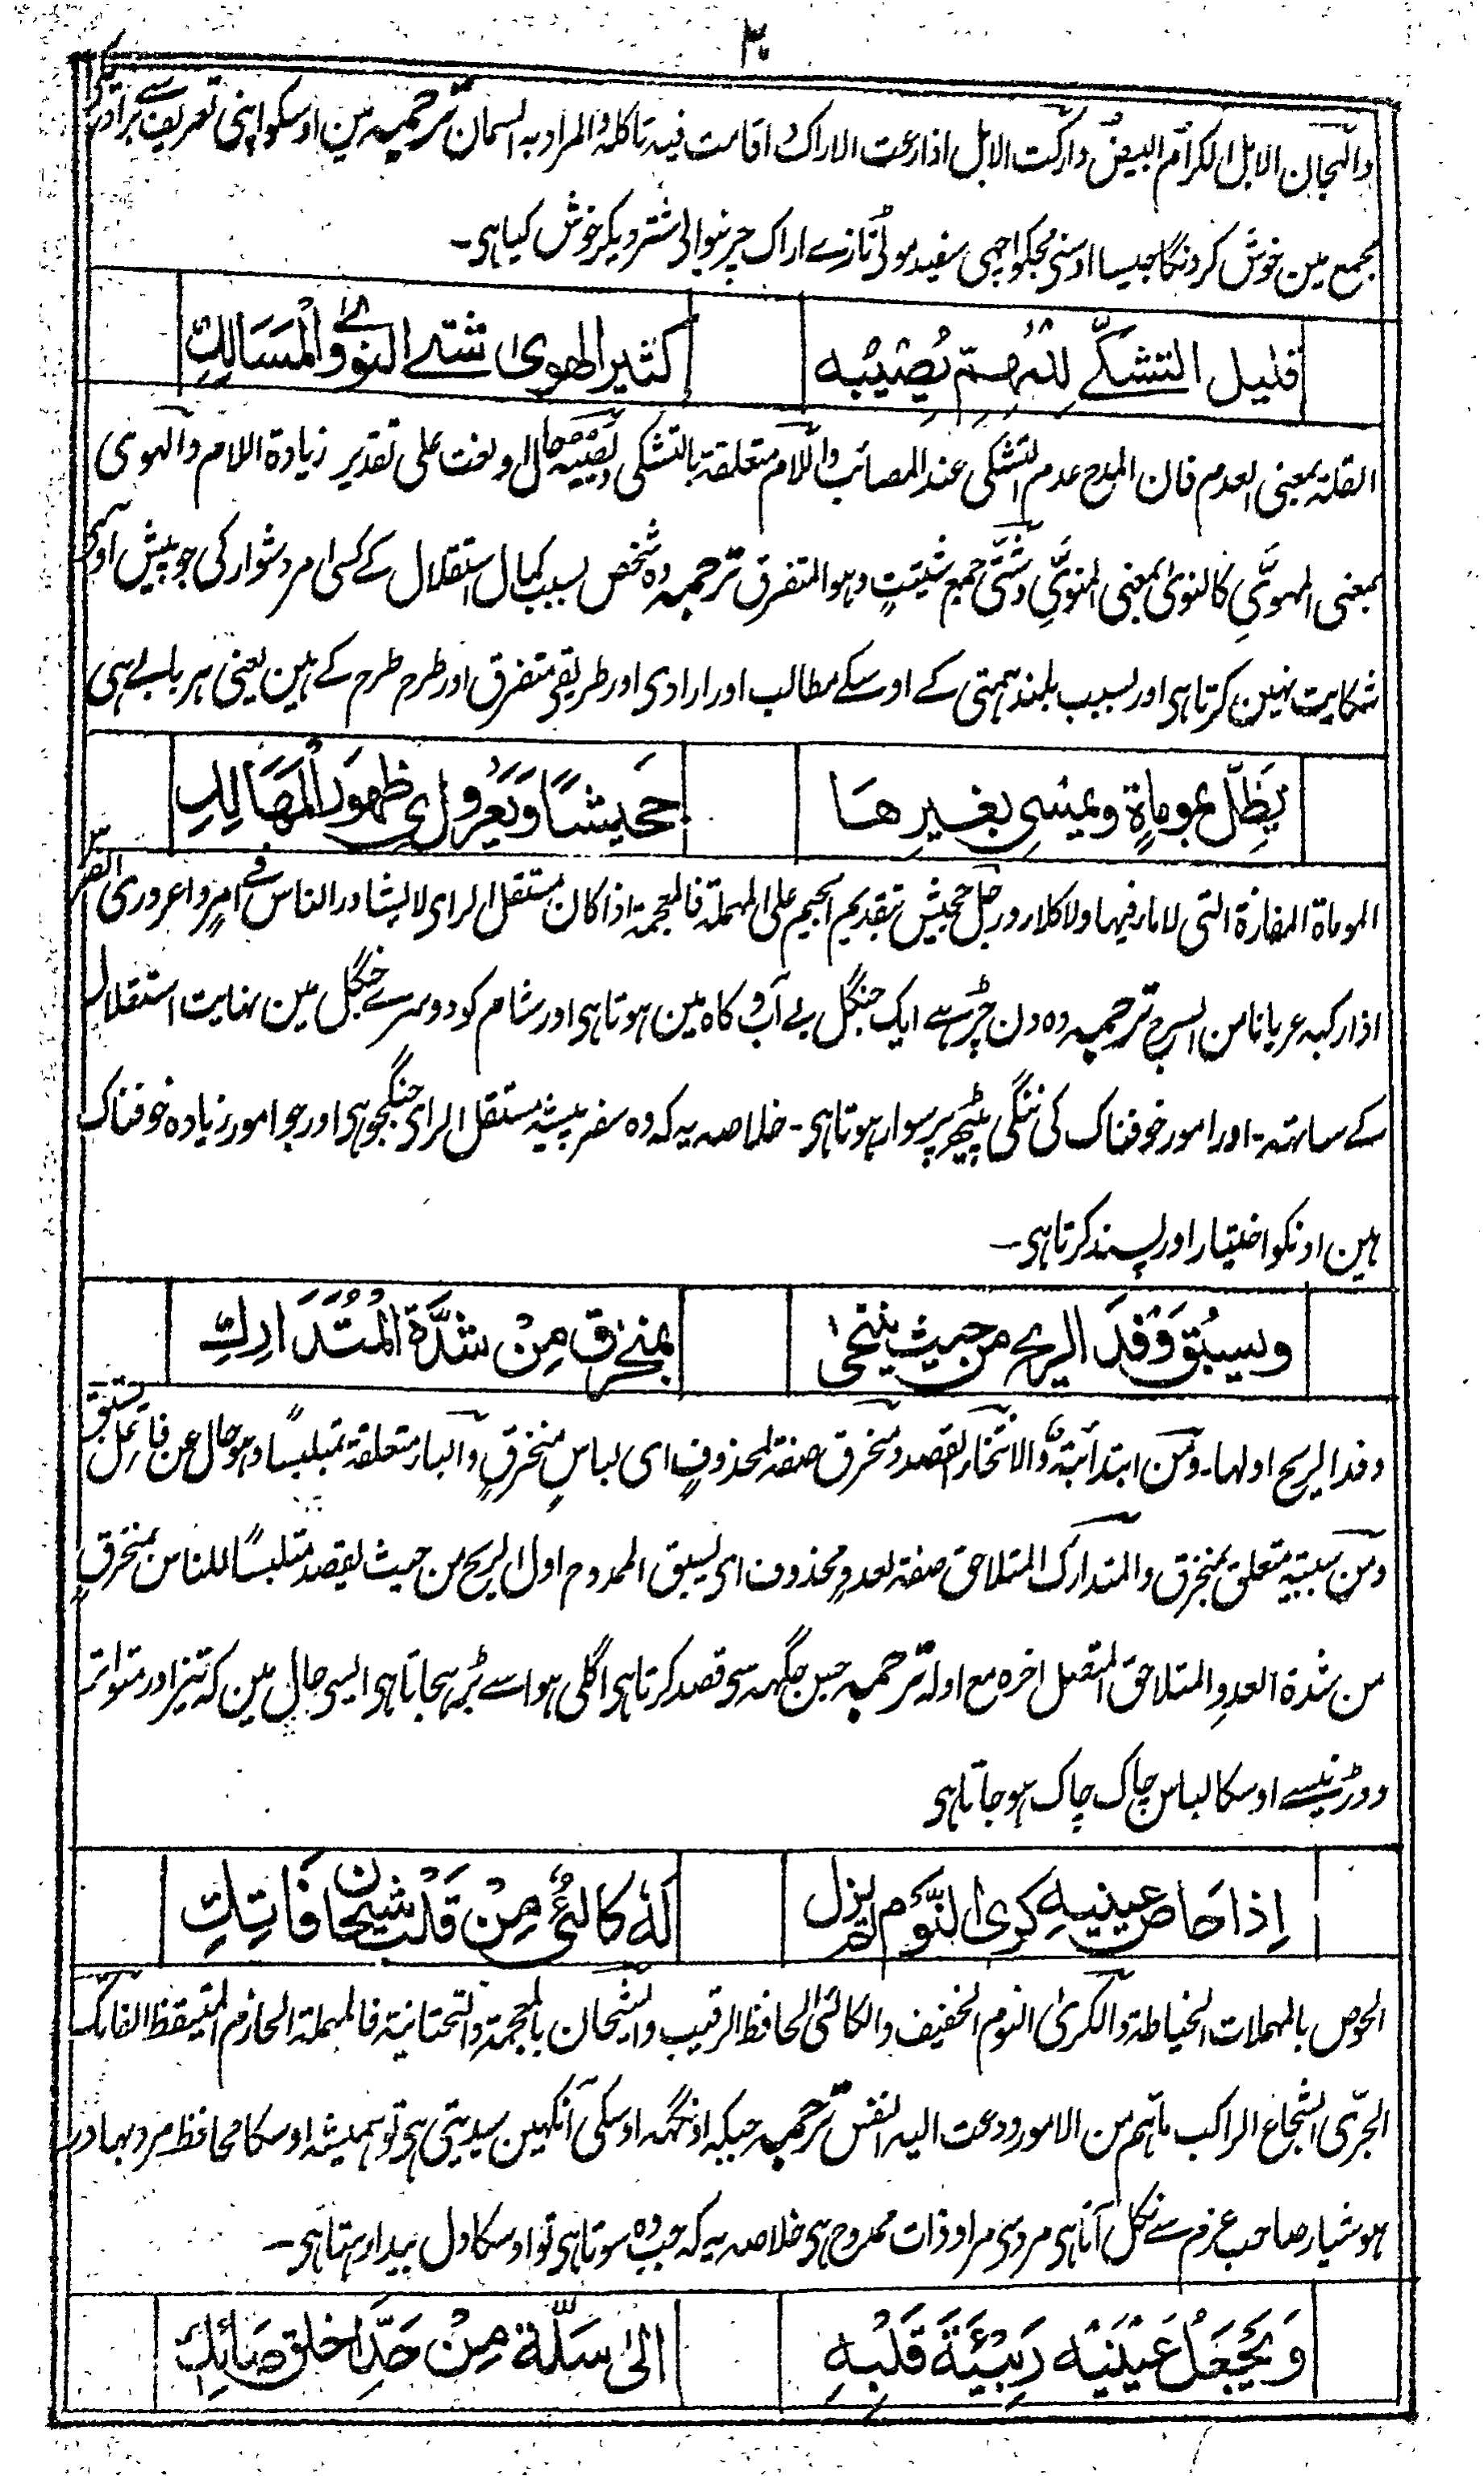 ۳۰
والہجان الابل الکرام البیض وارکت الابل اذا رعت الاراک او اقامت فیہ تاکلہ والمراد بہ السمان ترجمہ مین اوسکو اپنی تعریف سے برادری کی
مجمع مین خوش کردنگا جیسا اوسنی مجکو اچھی سفید موٹی تازے اراک چرنیوالی شتر دیکر خوش کیا ہی۔
قَلِیل التشکّے لِلْمُہِمِّ یُصِیْبُہ کَثیر الھوی شتے النوٰے والْمَسَالِكِ
القلۃ بمعنی العدم فان المدح عدم التشکی عند المصائب واللام متعلقۃ بالتشکی ویصیبہ حال او نعت علی تقدیر زیادۃ اللام والہوی
بمعنی المہویِّ کالنویٰ بمعنی المنویِّ وشتّٰی جمع شتیتٍ وہو المتفرق ترجمہ وہ شخص بسبب کمال استقلال کے کسی امر دشوار کی جو پیش اوسکی
شکایت نہین کرتا ہی اور بسبب بلند ہمتی کے اوسکے مطالب اور ارادی اور طریقی متفرق اور طرح طرح کے ہین یعنی ہر بابے ہی
یَظَلّ بموماةٍ ویمسی بغیرِھَا جَحیشًا وَیَعْرَوْرِی ظھورَ الْمَهَالِكِ
الموماۃ المفازۃ التی لا ماء فیہا ولا کلاء ورجل جحیش بتقدیم الجیم علی المہملۃ فالمعجمۃ اذا کان مستقل الرای لا یشاور الناس فے امرٍ واعروری الفرس
اذا رکبہ عریانا من السرج ترجمہ وہ دن چڑہے ایک جنگل بے آب و کاہ مین ہوتا ہی اور شام کو دوسرے جنگل مین نہایت استقلال
کے ساتہہ۔ اور امور خوفناک کی ننگی پیٹھ پر سوار ہوتا ہی۔ خلاصہ یہ کہ وہ سفر پیشہ مستقل الرای جنگجو ہی اور جو امور زیادہ خوفناک
ہین اونکو اختیار اور پسند کرتا ہی۔
ویسبُق وَفْدَ الریح من حیث ینتحی بمنخرق مِنْ شَدَّةِ الْمُتَدَارِكِ
وفد الریح اولہا۔ ومن ابتدائیۃ والانتحاء القصد ومنخرق صفۃ لمحذوفٍ ای لباسٍ منخرقٍ والباء متعلقۃ بمتلبسًا وہو حال عن فاعل یسبق
ومن سببیۃ متعلق بمنخرق والمتدارک المتلاحق صفۃ لعدوٍ محذوف ای یسبق الممدوح اول الریح من حیث یقصد متلبسًا للناس بمنخرقٍ
من شدۃ العدوِ المتلاحق المتصل اخرہ مع اولہ ترجمہ جس جگہہ سی قصد کرتا ہی اگلی ہوا سے بڑہجاتا ہی ایسی حال مین کہ تیز اور متواتر
دوڑنیسے اوسکا لباس چاک چاک ہوجاتا ہی
اِذا حَاص عینیهِ کریٰ النَّوْم لم یزل لَهٗ کالئٌ مِنْ قَلْبِ شیحان فَاتِكِ
الحوص بالمہملات الخیاطۃ والکریٰ النوم الخفیف والکالئ الحافظ الرقیب والشیحان بالمعجمۃ والتحتانیۃ فالمہملۃ الحازم المتیقظ الفاتک
الجرّی الشجاع الراکب ماہم من الامور ودعت الیہ النفس ترجمہ جبکہ اونگہہ اوسکی آنکہین سیدیتی ہی تو ہمیشہ اوسکا محافظ مرد بہادر
ہوشیار صاحب عزم سے نکل آتا ہی مرد سی مراد ذات ممدوح ہی خلاصہ یہ کہ جب وہ سوتا ہی تو اوسکا دل بیدار رہتا ہی۔
وَیَجْعَلُ عَیْنَیْه رَبِیْئَةَ قَلْبِهٖ الیٰ سَلَّةٍ مِنْ حَدِّ اخلق صَائِكِ